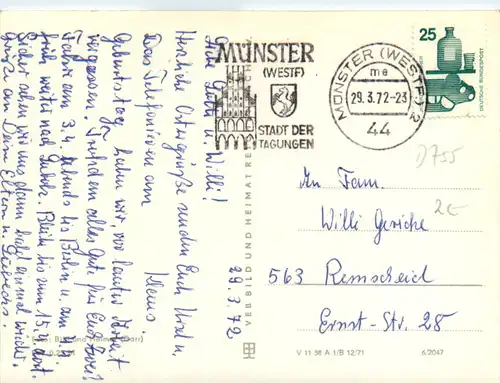 29.3.72
Liebe Gabi u. Willi!
Herzliche Ostergrüße senden Euch Ursula,
Klaus!
Das Telefonieren am
Geburtstag haben wir, vor lauter Arbeit
vergessen. Trotzdem alles Gute für Eure
Fahre am 3.4. abends bis Berlin u. am 4.4
früh weiter nach Lubolz. Bleibe bis zum 15.4. dort.
Sicher sehen wir uns dann bald einmal wieder.
Grüße an Deine Eltern u.
MÜNSTER
(WESTF)
STADT DER
TAGUNGEN
MÜNSTER (WESTF) 2
me
29.3.72-23
44
25
DEUTSCHE BUNDESPOST
D755
2€
An Fam.
Willi Gericke
563 Remscheid
Ernst-Str. 28
VEB BILD UND HEIMAT RE
V 11 58 A 1/B 12/71
6/2047